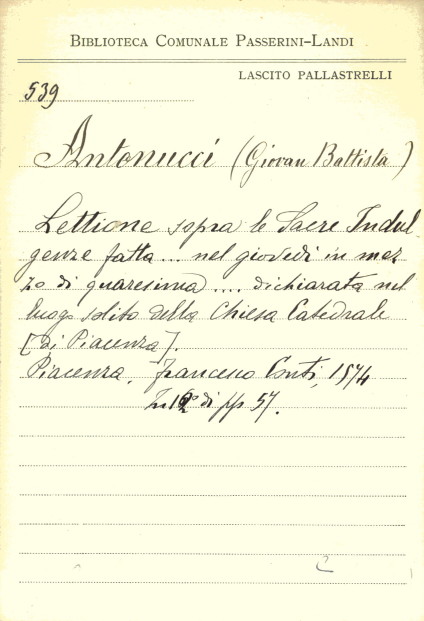 BIBLIOTECA COMUNALE PASSERINI-LANDI
LASCITO PALLASTRELLI
539
Antonucci (Giovan Battista)
Lettione sopra le Sacre Indul
genze fatta... nel giovedì in mez
zo di quaresima .... dichiarata nel
luogo solito della Chiesa Catedrale
[di Piacenza].
Piacenza, Francesco Conti, 1574
In di pp 57.